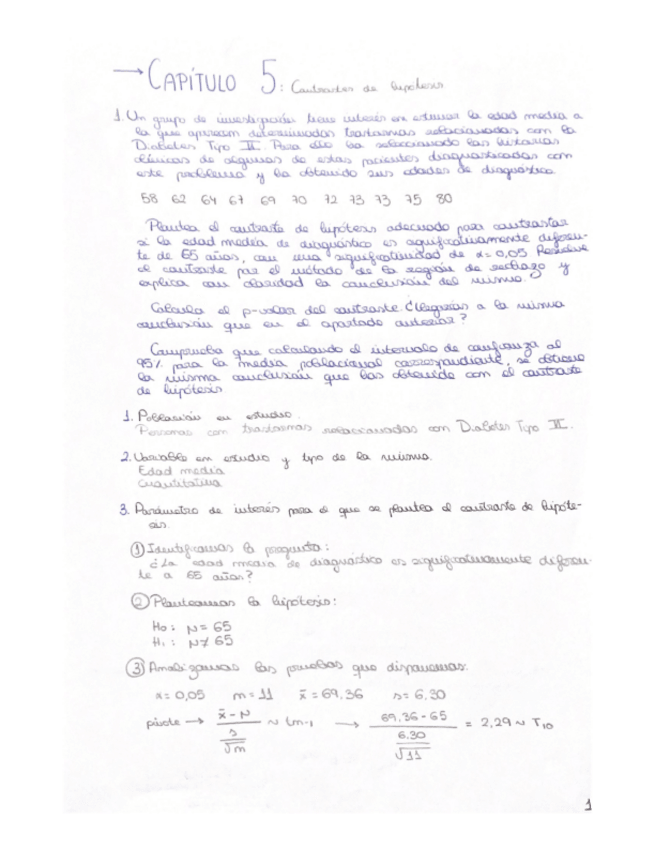 → CAPÍTULO 5: Contrastes de hipótesis
1. Un grupo de investigación tiene interés en estimar la edad media a
la que aparecen determinados trastornos relacionados con la
Diabetes Tipo II. Para ello ha seleccionado las historias
clínicas de algunos de estos pacientes diagnosticados con
este problema y ha obtenido sus edades de diagnóstico.
58 62 64 67 69 70 72 73 73 75 80
Plantea el contraste de hipótesis adecuado para contrastar
si la edad media de diagnóstico es significativamente diferen-
te de 65 años, con una significatividad de α = 0,05 Resuelve
el contraste por el método de la región de rechazo y
explica con claridad la conclusión del mismo.
Calcula el p-valor del contraste. ¿Llegarías a la misma
conclusión que en el apartado anterior?
Comprueba que calculando el intervalo de confianza al
95% para la media poblacional correspondiente, se obtiene
la misma conclusión que has obtenido con el contraste
de hipótesis
1. Población en estudio.
Personas con trastornos relacionados con Diabetes Tipo II.
2. Variable en estudio y tipo de la misma.
Edad media
Cuantitativa
3. Parámetro de interés para el que se plantea el contraste de hipóte-
sis.
① Identificamos la pregunta:
¿La edad media de diagnóstico es significativamente diferen-
te a 65 años?
② Planteamos la hipótesis:
H₀: μ = 65
H₁: μ ≠ 65
③ Analizamos las pruebas que disponemos.
α = 0,05 n = 11 x̄ = 69,36 s = 6,30
pivote → (x̄ - μ) / (s / √n) ~ tn-1 → (69,36 - 65) / (6,30 / √11) = 2,29 ~ T10
1